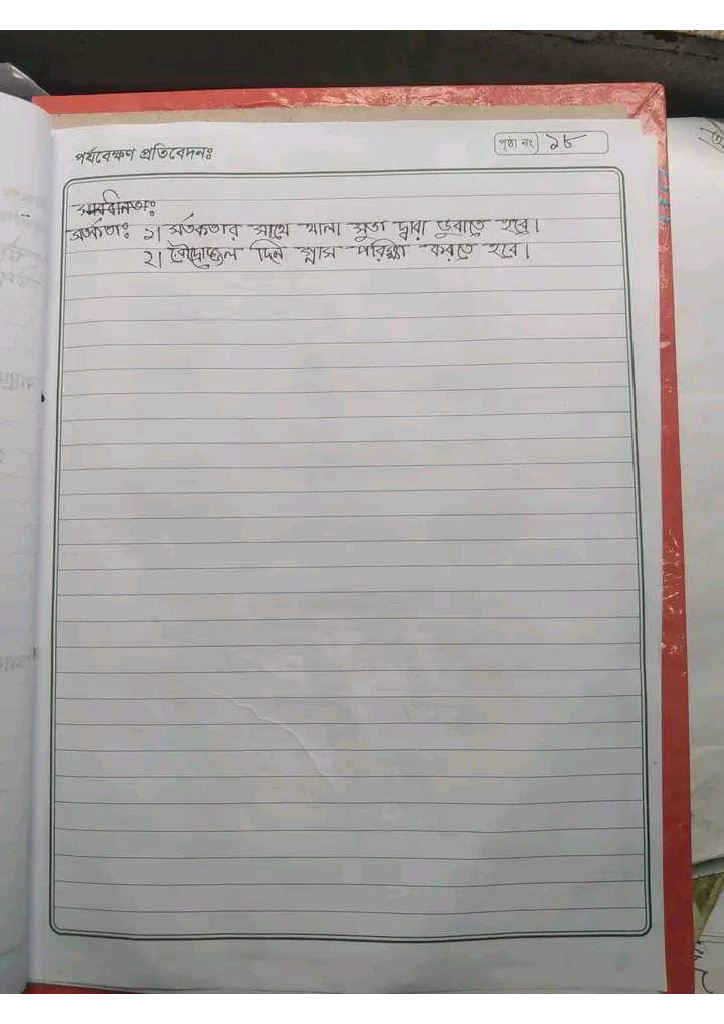 পর্যবেক্ষণ প্রতিবেদনঃ
পৃষ্ঠা নং ১৮
সাবধানতাঃ
সতর্কতাঃ ১। সর্তকতার সাথে থালা সুতা দ্বারা ডুবাতে হবে।
২। রৌদ্রোজ্জেল দিন শ্বাস পরিক্ষা করতে হবে।